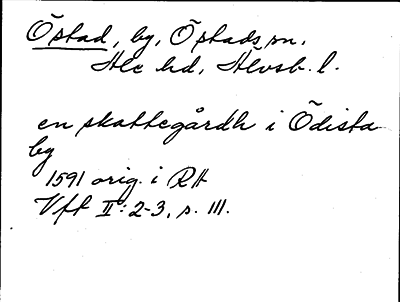 Östad, by, Östads sn,
Ale hd, Älvsb. l.
en skattegårdh i Ödista
by
1591 orig. i RA
Vft II: 2-3, s. 111.